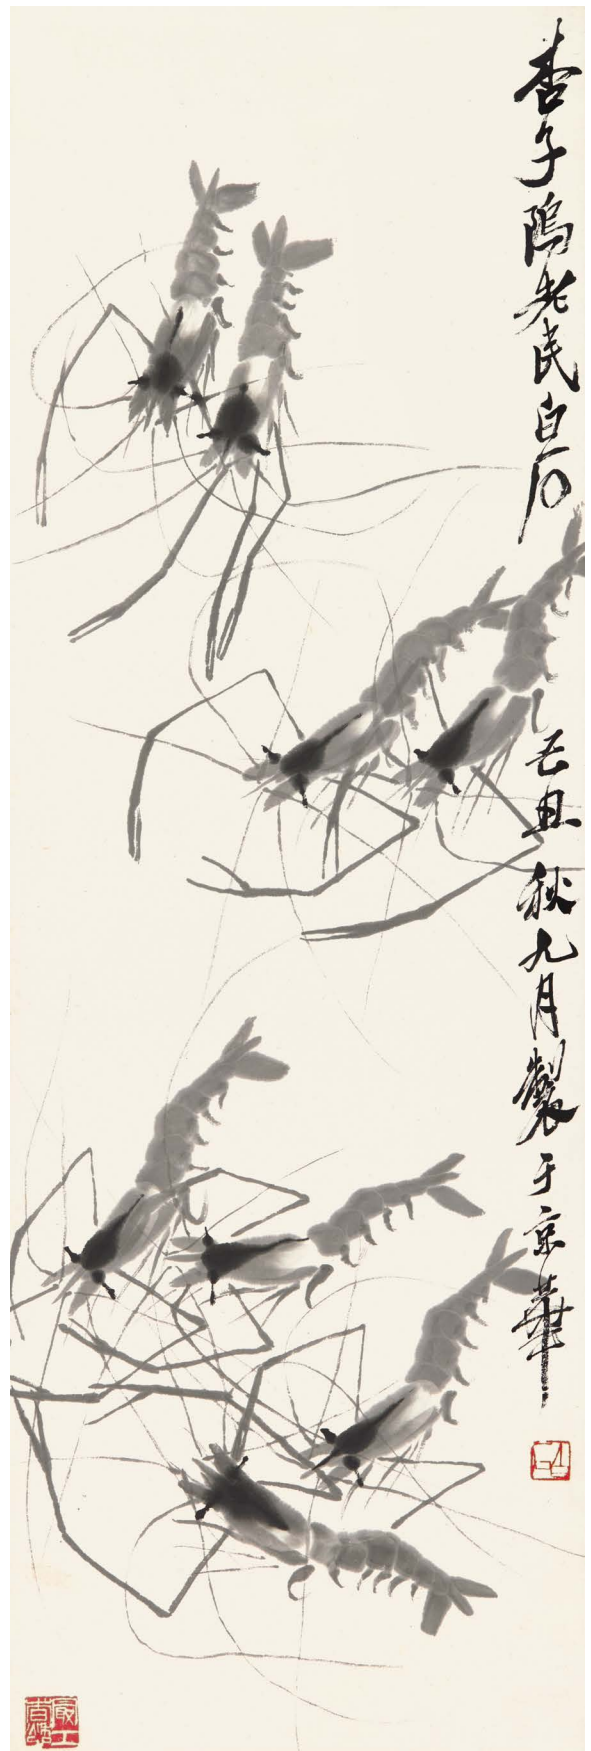 杏子隖老民白石
乙丑秋九月製于京華